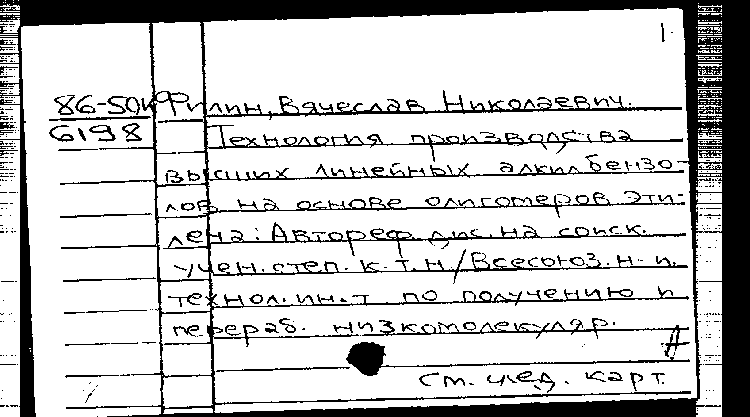 1.
86-50к Филин, Вячеслав Николаевич.
6198 Технология производства
высших линейных алкилбензо-
лов на основе олигомеров эти-
лена: Автореф. дис. на соиск.
учен. степ. к.т.н / Всесоюз. н-и.
технол. ин-т по получению и
перераб. низкомолекуляр.
см. след. карт.